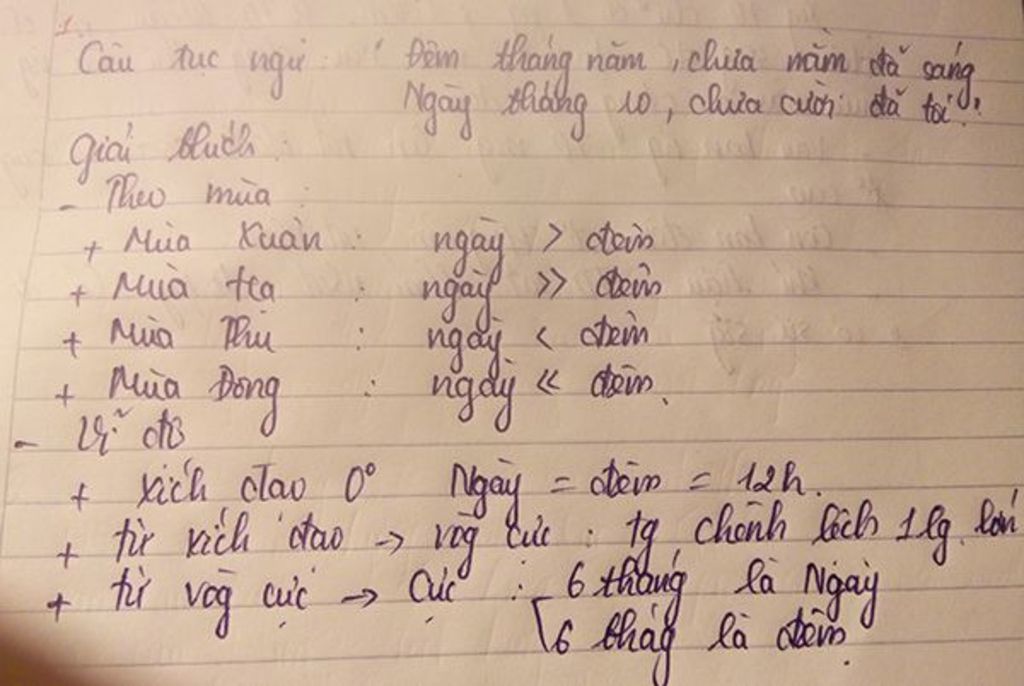 1.
Câu tục ngữ : " Đêm tháng năm, chưa nằm đã sáng
Ngày tháng 10, chưa cười đã tối".
Giải thích
- Theo mùa :
+ Mùa Xuân : ngày > đêm
+ Mùa Hạ : ngày >> đêm
+ Mùa Thu : ngày < đêm
+ Mùa Đông : ngày << đêm.
- Vĩ độ
+ xích đạo 0° Ngày = đêm = 12h.
+ từ xích đạo → vòg cực : tg chênh lệch 1 lg lớn
+ từ vòg cực → Cực : 6 tháng là Ngày
6 thág là đêm.